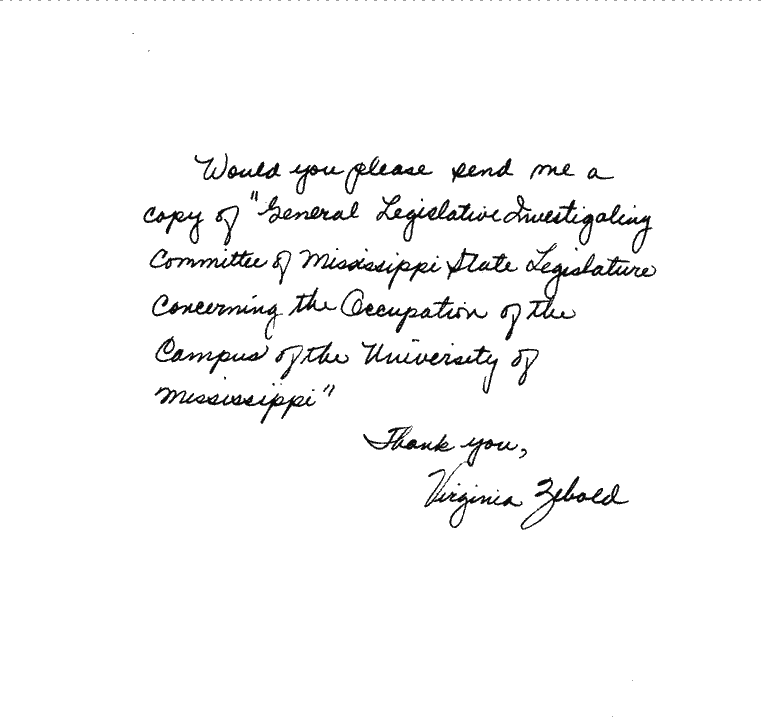 Would you please send me a
copy of "General Legislative Investigating
Committee of Mississippi State Legislature
Concerning the Occupation of the
Campus of the University of
Mississippi"
Thank you,
Virginia Zebold